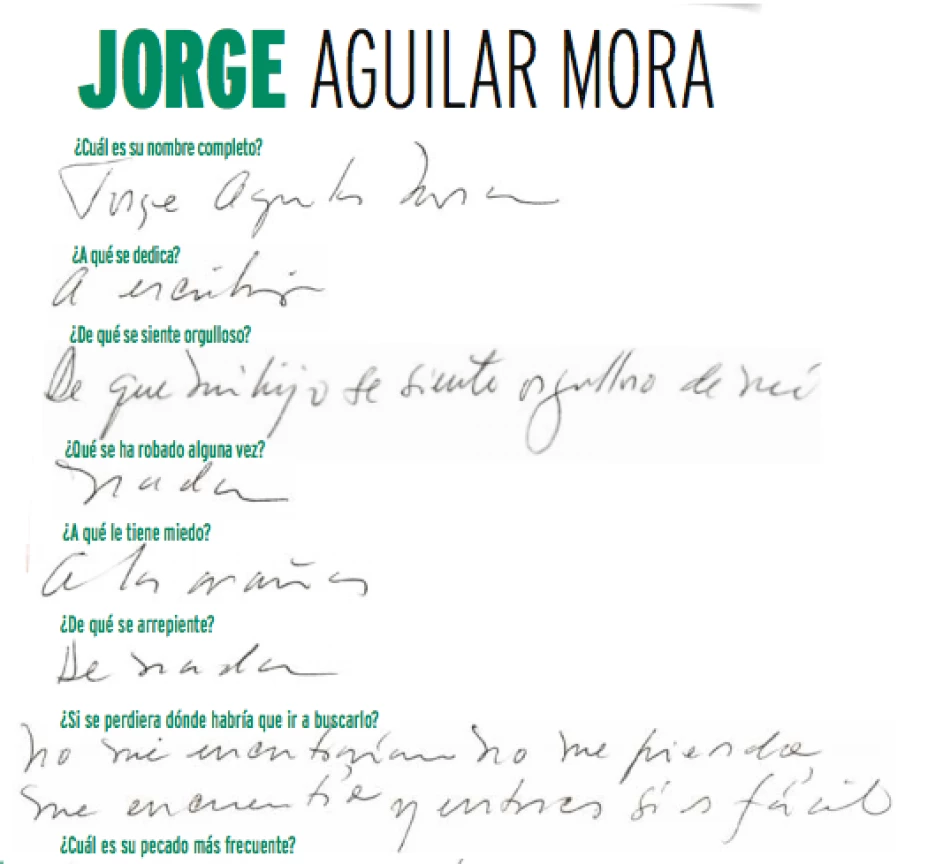 JORGE AGUILAR MORA
¿Cuál es su nombre completo?
Jorge Aguilar Mora
¿A qué se dedica?
A escribir
¿De qué se siente orgulloso?
De que mi hijo se siente orgulloso de mí
¿Qué se ha robado alguna vez?
nada
¿A qué le tiene miedo?
A las arañas
¿De qué se arrepiente?
De nada
¿Si se perdiera dónde habría que ir a buscarlo?
no me encontrarían no me pierda,
me encuentre y entonces sí es fácil
¿Cuál es su pecado más frecuente?